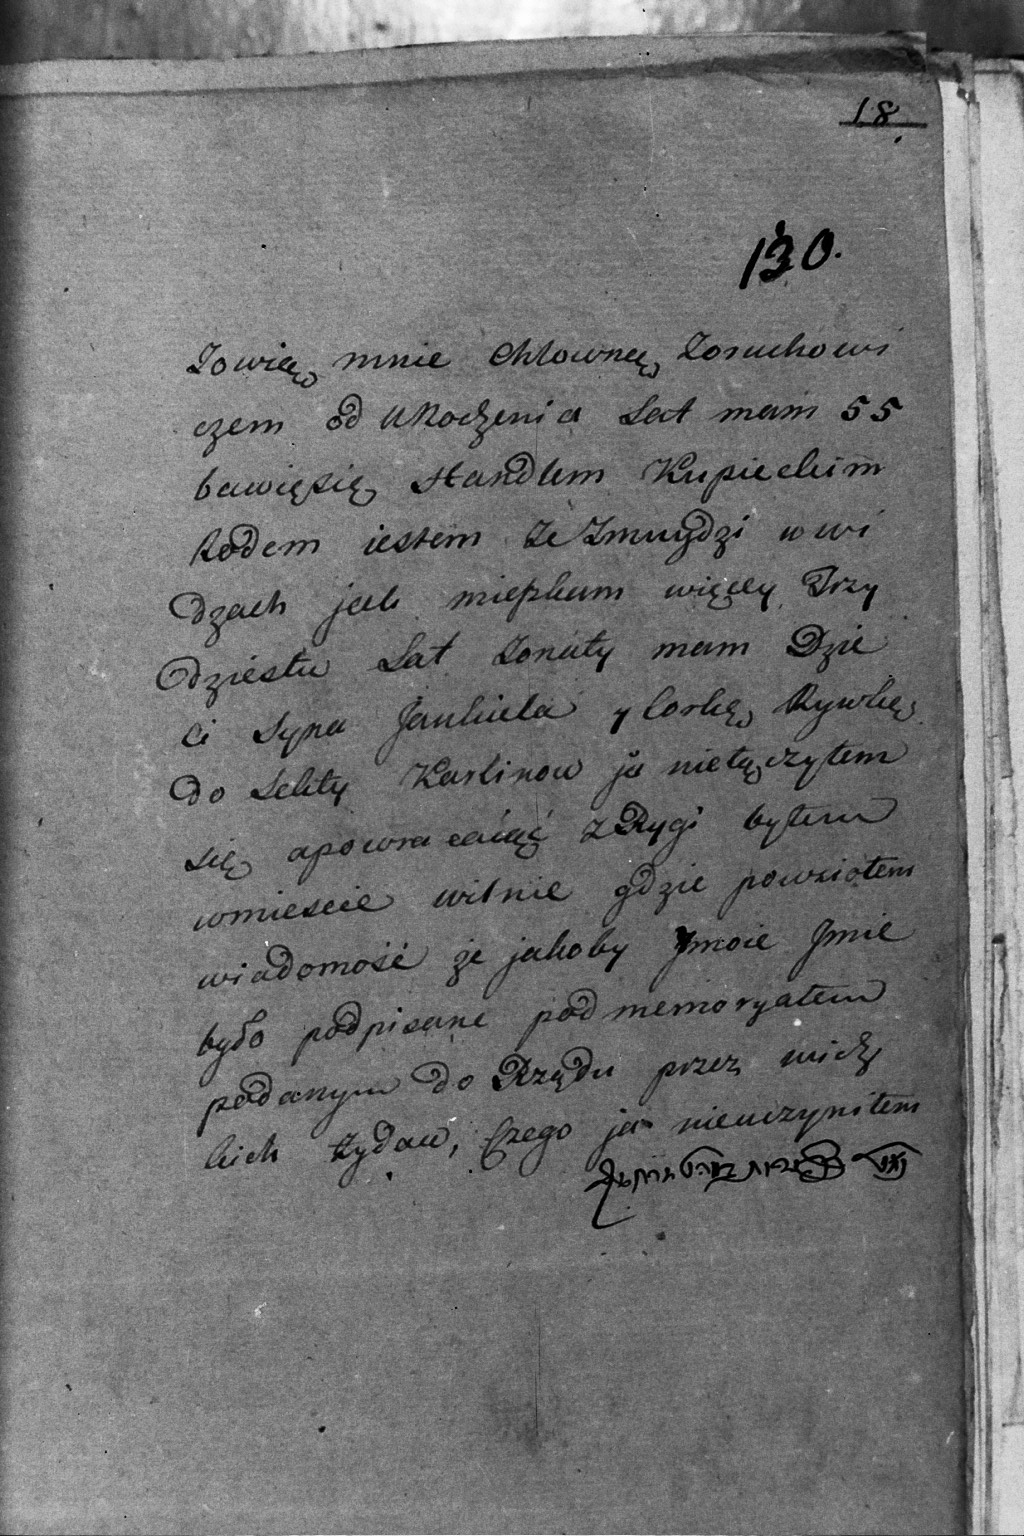 18.
130.
Zowią mnie Chlowną Zoruchowi
czem od Urodzenia Lat mam 55
bawięsię Handlem Kupieckim
Rodem iestem ze Zmuydzi w wi
dzach jak mieszkam więcey Trzy
dziestu Lat Zonaty mam Dzie
ci Syna Jankiela y Corkę Rywkę
do Sekty Karlinow ja niełączyłem
się apowracaiąć z Rygi byłem
wmiescie wilnie gdzie powziołem
wiadomość że jakoby Jmoie Jmie
było podpisane pod memoryałem
podanym do Rządu przez widz
kich żydow, Czego ja nieuczyniłem